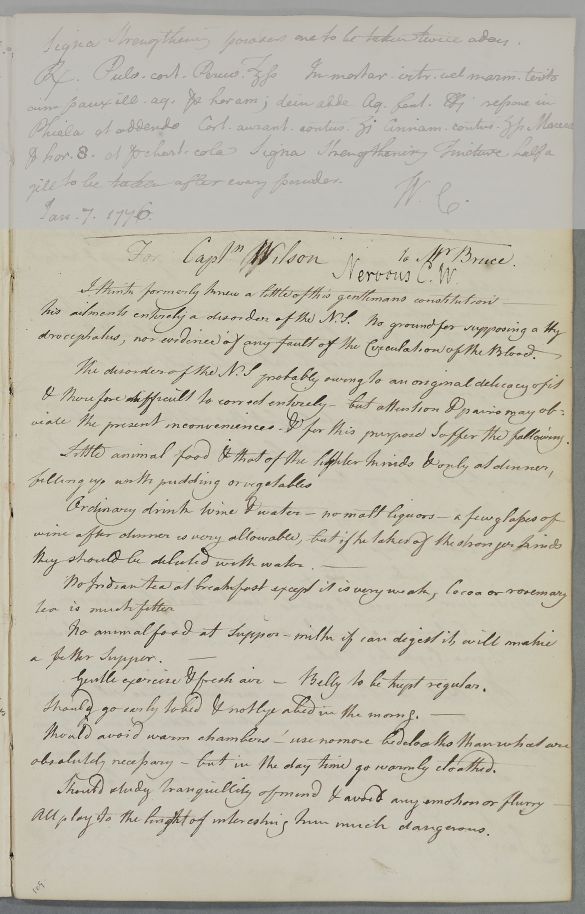 Signa Strengthening powders one to be taken twice aday.
Rx. Pulv. cort. Peruv. ℥ss In mortar. vitr. vel marm. terito
cum pauxill. aq. p horam; dein adde Aq. font. ℔j repone in
Phiala et addendo Cort. aurant. contus. ʒi Cinnam. contus. ʒss Macera
p hor. 8. et p chart. cola Signa Strengthening Tincture half a
gill to be taken after every powder.
W. C.
Jan. 7. 1776.
For Captn Wilson to Mr Bruce.
Nervous C. W
I think formerly knew a little of this gentlemans constitution —
his ailments entirely a disorder of the N.S. No ground for supposing a Hy
drocephalus, nor evidence of any fault of the Circulation of the Blood. —
The disorder of the N S probably owing to an original delicacy of it
& therefore difficult to correct entirely — but attention & pains may ob-
viate the present inconveniences & for this purpose I offer the following.
Little animal food & that of the lighter kinds & only at dinner,
filling up with pudding or vegetables
Ordinary drink wine & water — no malt liquors — a few glasses of
wine after dinner is very allowable, but if he takes of the stronger kinds
they should be diluted with water. —
No Indian tea at breakfast except it is very weak, Cocoa or rosemary
tea is much fitter
No animal food at Supper — milk if can digest it, will make
a fitter Supper. —
Gentle exercise & fresh air — Belly to be kept regular.
Should go early to bed & not lye abed in the morng. —
Should avoid warm chambers — use no more bedcloaths than what are
absolutely necessary — but in the day time go warmly cloathed.
Should study tranquillity of mind & avoid any emotion or flurry —
All play to the hight of interesting him much dangerous.
109